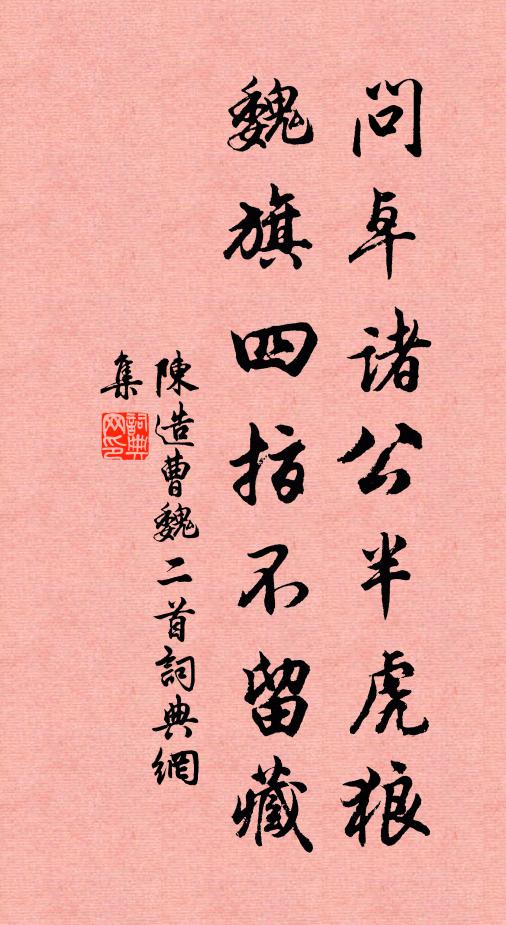 問卓諸公半虎狼
魏旗四指不留藏
陳造曹魏二首詞典網
集
詞典网印